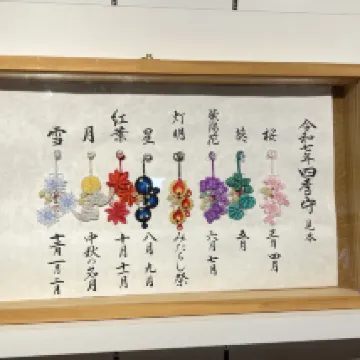 令和七年 四季守 見本
桜 三月 四月
葵 五月
紫陽花 六月 七月
灯明 みたらし祭
星 八月 九月
紅葉 十月 十一月
月 中秋の名月
雪 十二月 一月 二月